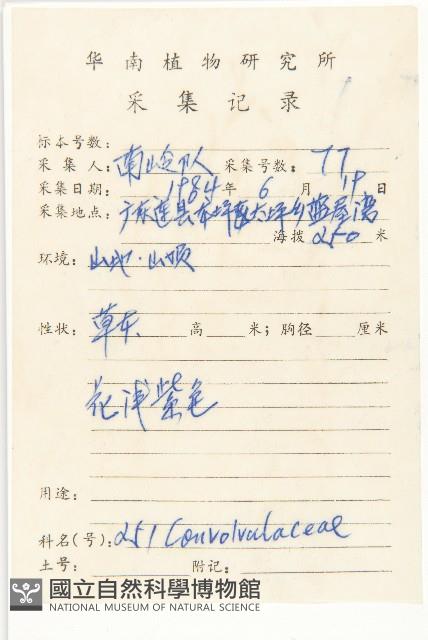 华南植物研究所
采集记录
标本号数:
采集人: 南岭队 采集号数: 77
采集日期: 1984年 6月 19日
采集地点: 广东连县东坪大坪乡盘屋湾
海拨 250 米
环境: 山地·山顶
性状: 草本 高 米; 胸径 厘米
花浅紫色
用途:
科名(号): 251 Convolvulaceae
土号: 附记:
國立自然科學博物館
NATIONAL MUSEUM OF NATURAL SCIENCE